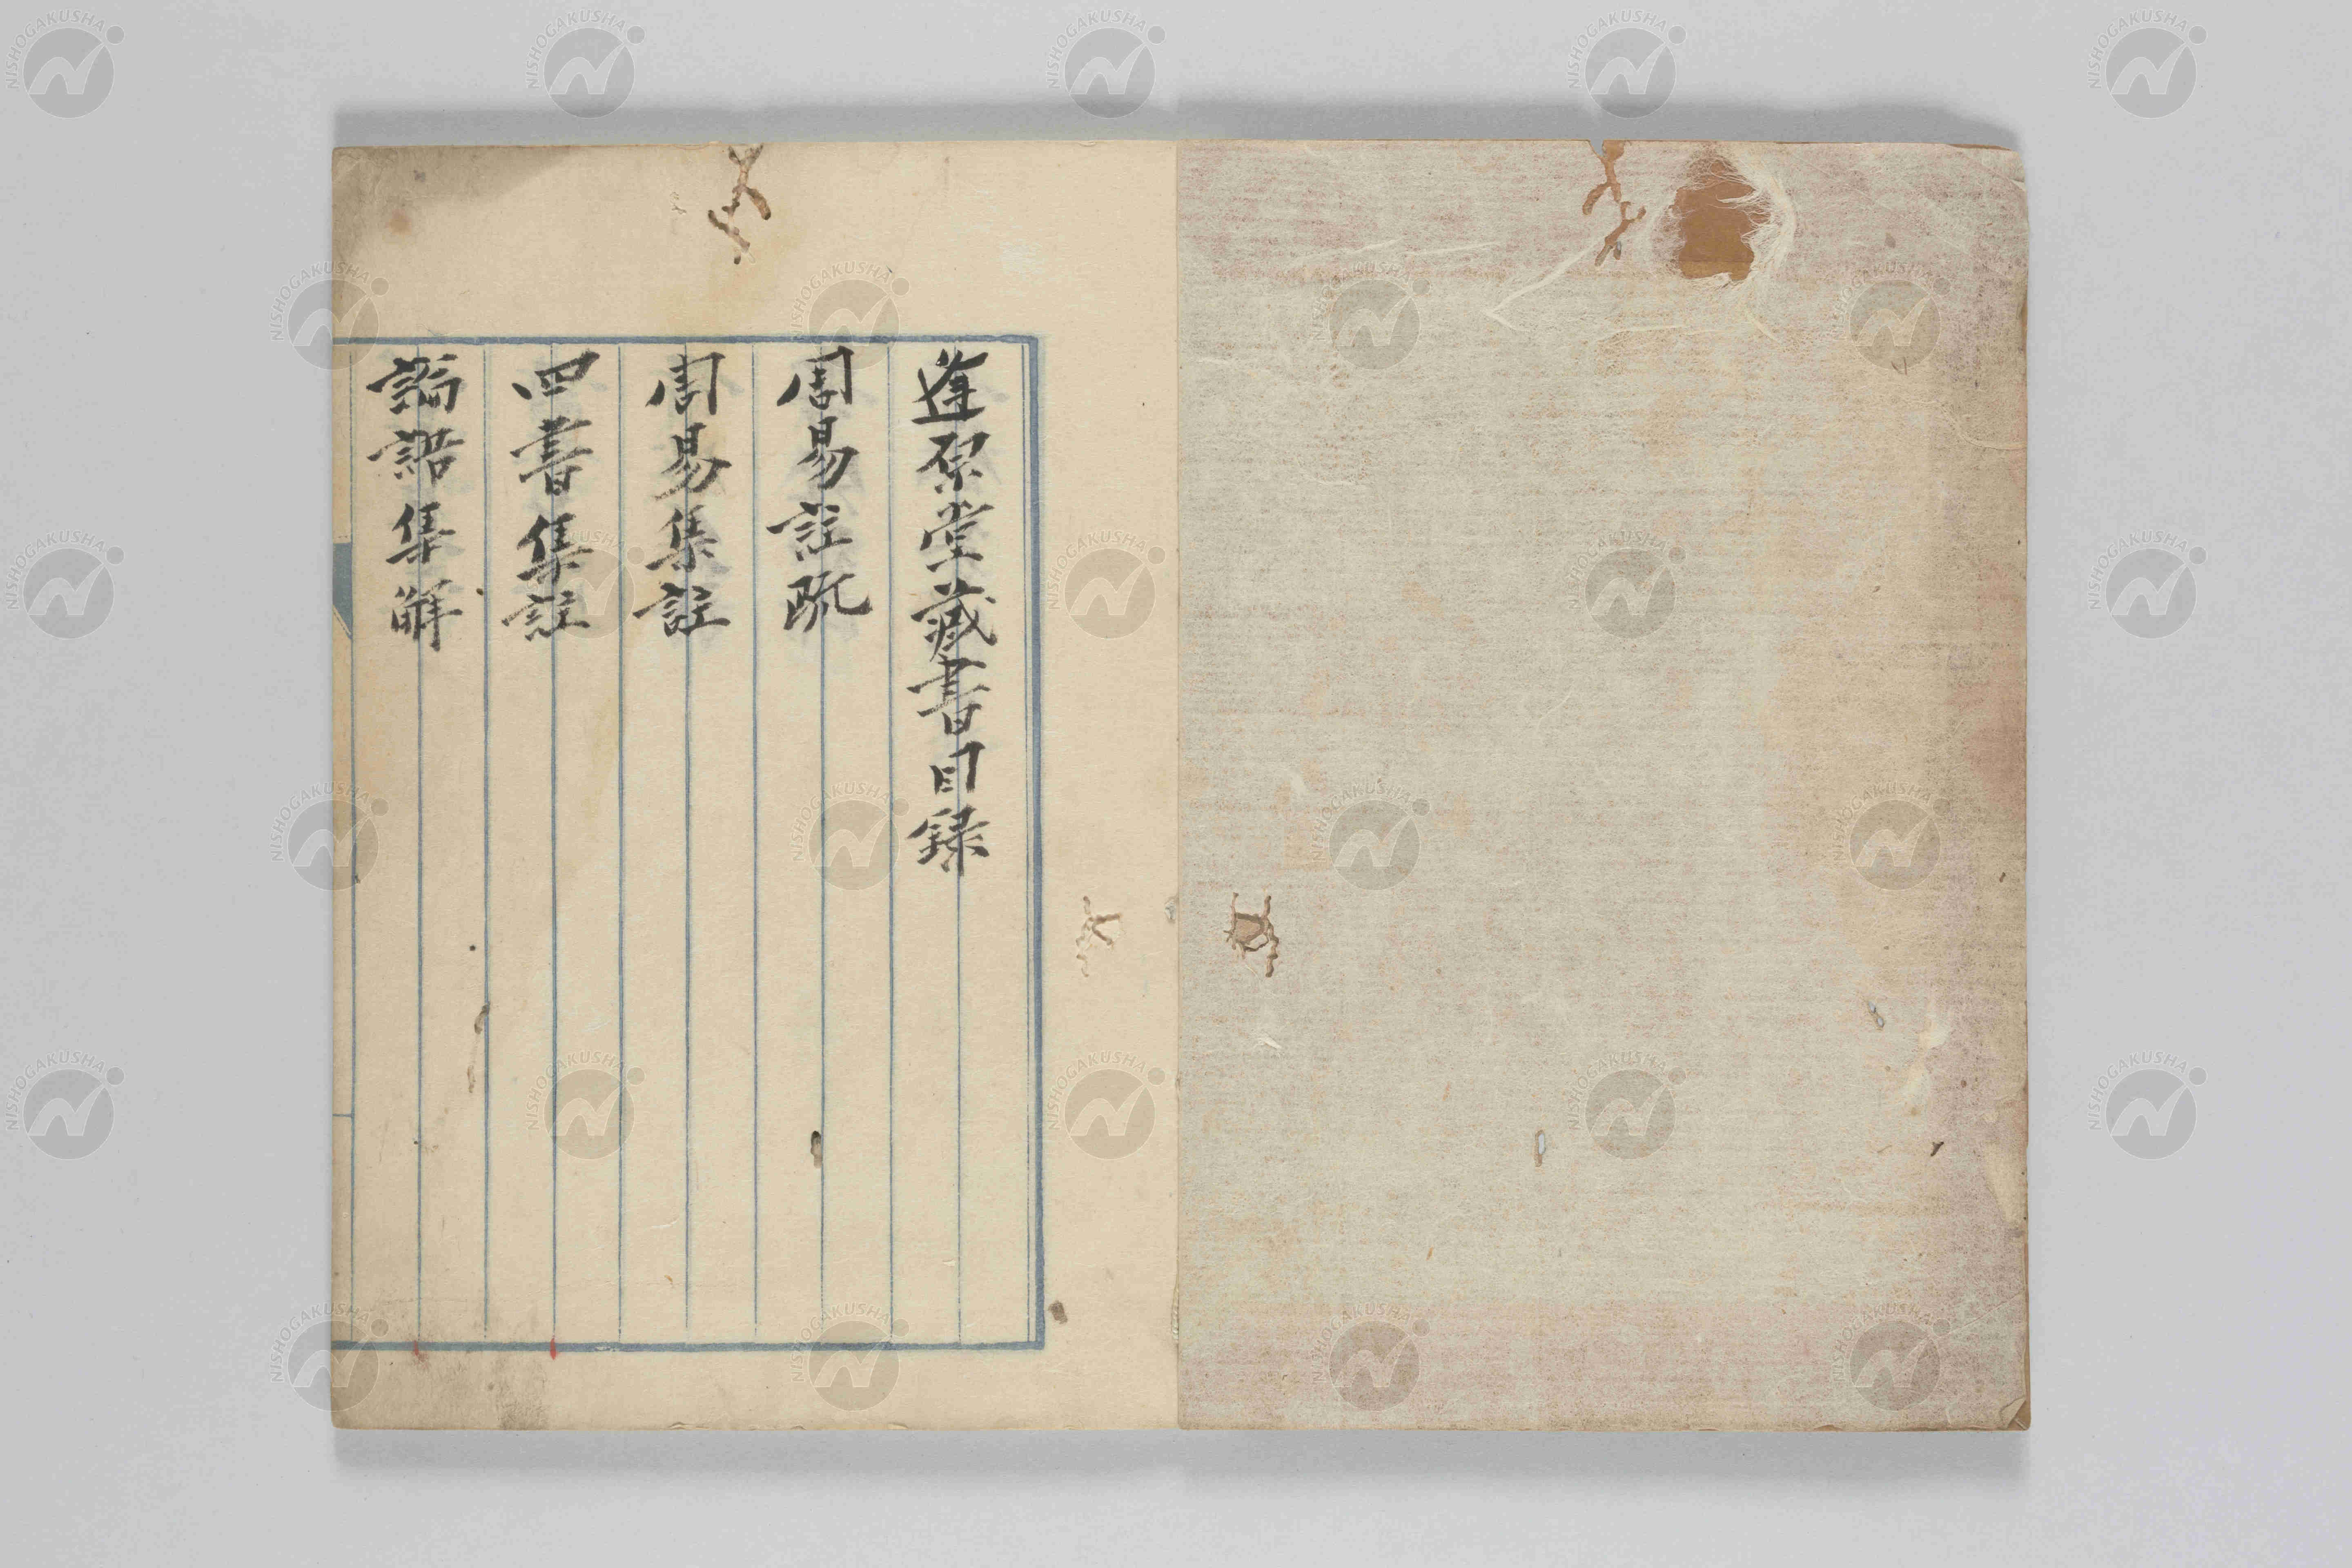 逢原堂藏書目録
周易註疏
周易集註
四書集註
論語集解
NISHOGAKUSHA